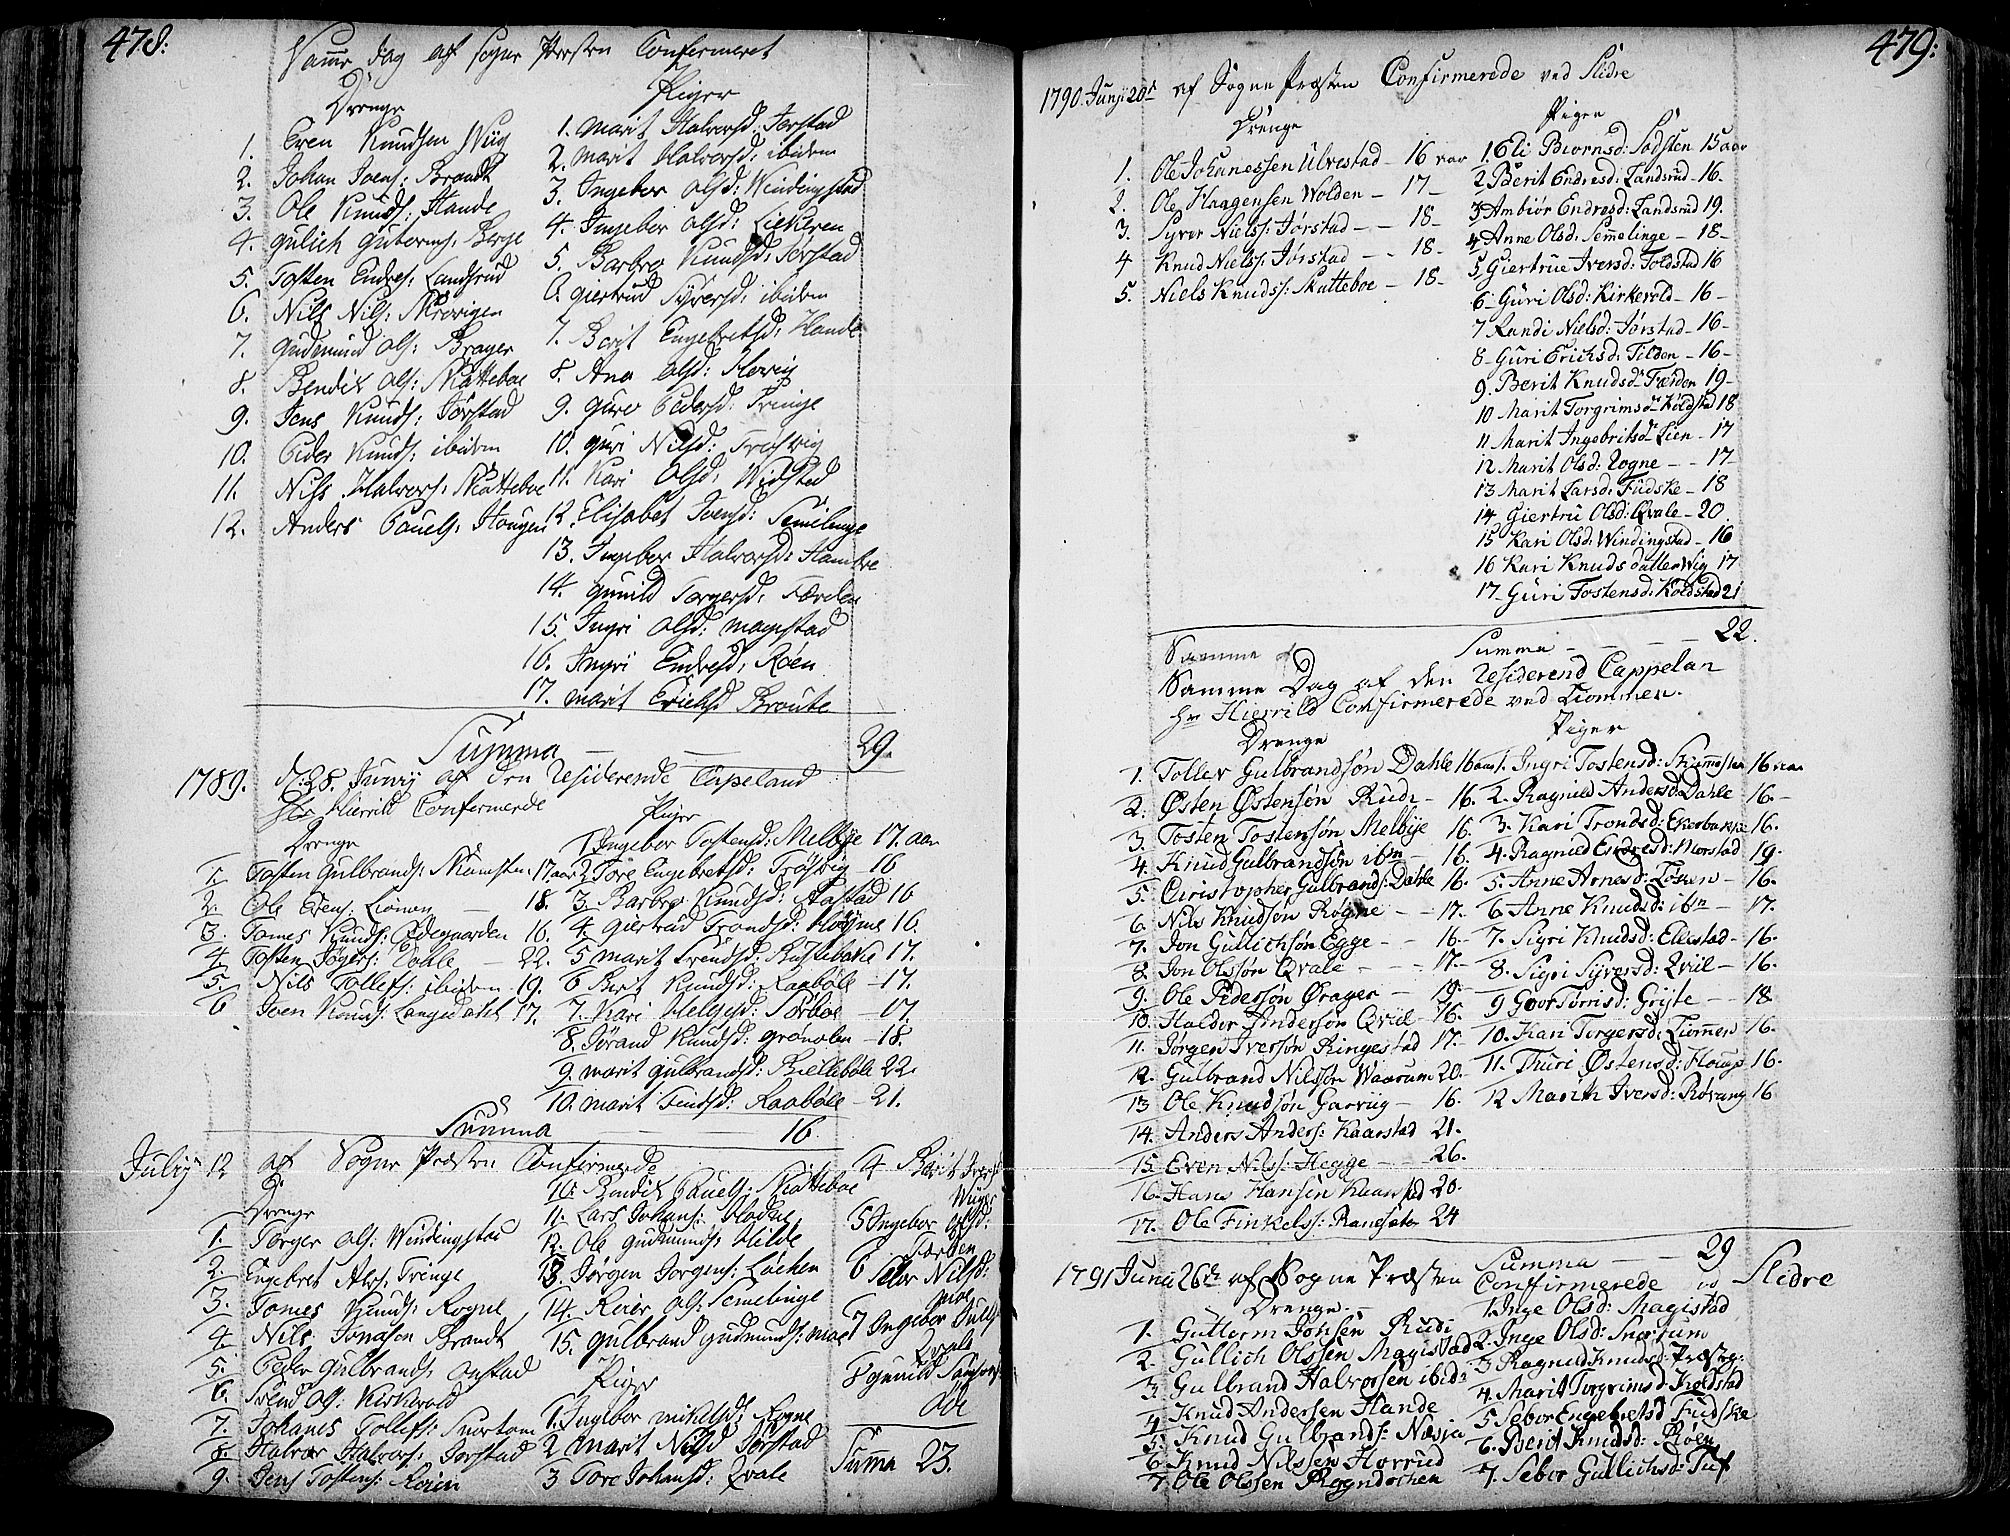 478:
Samme dag af Sogne Præsten Confirmeret
Drenge
1. Even Knudsen Wiig
2. Johan Joens: Brandt
3. Ole Knuds: Hande
4. Gulich Guterms: Berge
5. Tosten Endres: Landsrud
6. Nils Nils: Skrovigen
7. Gudmund Ols: Brager
8. Bendix Ols: Skatteboe
9. Jens Knuds: Jørstad
10. Peder Knuds: ibidem
11. Nils Halvors: Skatteboe
12. Anders Pouels: Hougen
Piger
1. Marit Halvorsd: Jorstad
2. Marit Halvorsd: ibidem
3. Ingebor Olsd: Windingstad
4. Ingebor Olsd: Liekeren
5. Barbro Knudsd: Jorstad
6. Giertrud Syversd: ibidem
7. Berit Engebretsd: Hande
8. Ana Olsd:
9. Guro Pedersd: Tringe
10. Guri Nilsd:
11. Kari Olsd: Widsted
12. Elisabet Ivensd: Semelinge
13. Ingebor Halvorsd: Hambre
14. Gunild Torgersd: Førden
15. Ingri Olsd: Magistad
16. Ingri Endresd: Røen
17. Marit Erichsd Broute
Summa 29.
1789. d: 28. Junij af den Residerende Capeland
Hr Hierrild Confermerde
Drenge
1. Tosten Gulbrands: Skumsten 17 aar
2. Ole Evens: Liomen 18.
3. Tomes Knuds: Ødegaarden 16.
4. Tosten Jøgers: Qvale 22.
5. Nils Tollefs: ibidem 19.
6 Iven Knuds: Langedalet 17.
Piger
1 Ingebor Tostensd: Melbye 17. aar
2 Tore Engebretsd: Trøsvig 16
3. Barbro Knudsd: Aastad 16
4. Giertrud Trondsd: Høyne 16.
5 Marit Trundsd: Rustebake 17.
6 Berit Knudsd: Raaböle 17.
7. Kari Helgesd: Sørboe 17.
8. Jørand Knudsd: Grönolen 18.
9. Marit Gulbrandsd: Biellebole 22.
10. Marit Findsd: Raaböle 21.
Summa 16.
Julij 12 af Sogne Præsten Confirmerde
Drenge
1. Torger Ols: Windingstad
2. Engebret Ands: Tringe
3. Tomes Knuds: Rogne
4. Nils Jonason Brandt
5. Peder Gulbrands: Opstad
6. Svend Ols: Kirkevold
7. Johanes Tollefs: Snortom
8. Halvor Halvors: Jorstad
9. Jens Tostens: Roien
10. Bendix Pauels: Skatteboe
11. Lars Johans:
12. Ole Gudmunds: Hilde
13. Jørgen Jorgens: Løchen
14. Reier Ols: Semelinge
15. Gulbrand Gudmunds: Moe
Piger
1. Ingebor Mikelsd: Rogne
2 Marit Nilsd Jörstad
3 Tore Johansd: Qvale
4 Berit Iversd
5 Ingebor Olsd:
Førden
6 Sebor Nilsd:
Moe
7 Ingebor Gulls
Qvale
8 Gunild
Ode
Summa 23.
479:
1790. Junij 20d af Sogne Præsten Confirmerede ved Slidre
Drenge
1. Ole Johanessen Ulvestad - 16 aar
2. Ole Haagensen Wolden - 17 -
3. Syver Niels: Jørstad - - 18 -
4 Knud Niels: Jørstad - - 18 -
5. Niels Knuds: Skatteboe - 18 -
Piger
1. Eli Biornsd: Sodsten 15 aar
2 Berit Endresd: Landsrud - 16 -
3 Ambiör Endresd: Landsrud 19.
4 Anne Olsd: Semelinge - 18 -
5 Giertrue Iversd: Toldstad 16
6 Guri Olsd: Kirkevold - 16 -
7 Randi Nielsd: Jørstad - 16 -
8 Guri Erichsd: Tilden - 16 -
9. Berit Knudsd: Færden 19 -
10 Marit Torgrimsd: Koldstad 18
11 Marit Ingebritsd: Lien - 17
12 Marit Olsd: Rogne - - 17 -
13 Marit Larsd: Fudske - 18
14 Giertru Olsd: Qvale - 20
15 Kari Olsd: Windingstad - 16
16 Kari Knudsdatter Wiig 17
17 Guri Tostensd: Koldstad 21
Summa - - - 22.
Samme
Samme Dag af den Residerend Cappelan
Hr Hierrild Confirmerede ved Liomen.
Drenge
1. Tollev Gulbrandsön Dahle 16 aar
2. Østen Østensön Rudi - 16.
3. Tosten Tostensön Melbye 16.
4. Knud Gulbrandsön ibm - 16.
5. Christopher Gulbrands: Dahle 16.
6. Nils Knudsön Rögne - - 17.
7. Jon Gullichsön Egge - - 16 -
8. Jon Olssön Qvale - - - 17 -
9. Ole Pedersön Ørager - 19 -
10. Haldor Andersön Qviil - 16.
11. Jørgen Iversön Ringestad 17 -
12. Gulbrand Nilssön Waarum 20.
13 Ole Knudsön Garviig - 16.
14. Anders Anders: Kaarstad 21.
15. Even Nilss: Hegge - - - 26.
16. Hans Hansen Kaarstad 20.
17. Ole Finkels: Ranesater 24
Piger
1. Ingri Tostensd: Skiumsten 16 aar
2. Ragnild Andersd: Dahle 16. -
3. Kari Trondsd: Ekerbakke 16.
4. Ragnild Endresd: Morstad 19.
5. Anne Arnesd: Løken - 16.
6 Anne Knudsd: ibm - 17.
7. Sigri Knudsd: Ellestad - 16.
8. Sigri Syversd: Qviil - 16.
9 Goor Torrisd: Grijte - - 18
10. Kari Torgersd: Liomen 16.
11. Thuri Østensd: Houge 16.
12 Marith Iversd: Røvang 16
Summa - 29
1791 Junii 26de af Sogne Præsten Confirmerede ved Slidre
Drenge
1. Gutterm Johsen Rudi
2. Gullich Olssen Magistad
3. Gulbrand Halvorsen ibid:
4. Knud Andersen Hande
5. Knud Gulbrands: Næsja
6. Knud Nilssen Hørrud
7. Ole Olssen Rogndochen
1. Inge Olsd: Magistad
2. Inge Olsd: Snortum
3 Ragnild Knudsd: Præstg:
4. Marit Torgrimsd Koldstad
5 Sebor Engebretsd Fudske
6. Berit Knudsd: Roen
7. Sebor Gullichsd: Tuf